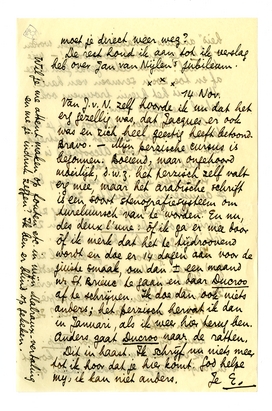 moet je direct weer weg?
De rest houd ik aan tot ik verslag
heb over Jan van Nijlen's jubileum.
x x x
14 Nov.
Van J.v.N. zelf hoorde ik nu dat het
erg gezellig was, dat Jacques er ook
was en zich heel geestig heeft betoond.
Bravo. — Mijn perzische cursus is
begonnen. Boeiend, maar ongehoord
moeilijk, d.w.z. het perzisch zelf valt
erg mee, maar het arabische schrift
is een soort stenografiesysteem om
dureluursch van te worden. En nu,
des deux l'une: òf ik ga er mee door
òf ik merk dat het te tijdroovend
wordt en doe er 14 dagen aan voor de
juiste smaak, om dan een maand
nr. St. Brieuc te gaan en daar Ducroo
af te schrijven. Ik doe dan ook niets
anders; het perzisch hervat ik dan
in Januari, als ik weer hier terug ben.
Anders gaat Ducroo naar de ratten.
Dit in haast. Ik schrijf nu niets meer
tot ik hoor dat je hier komt. God helpe
mij, ik kan niet anders.
Je E.
Wil je me attent maken op fouten etc. in mijn Malraux-vertaling
en me je indruk zeggen? Ik ben er blind op gekeken!